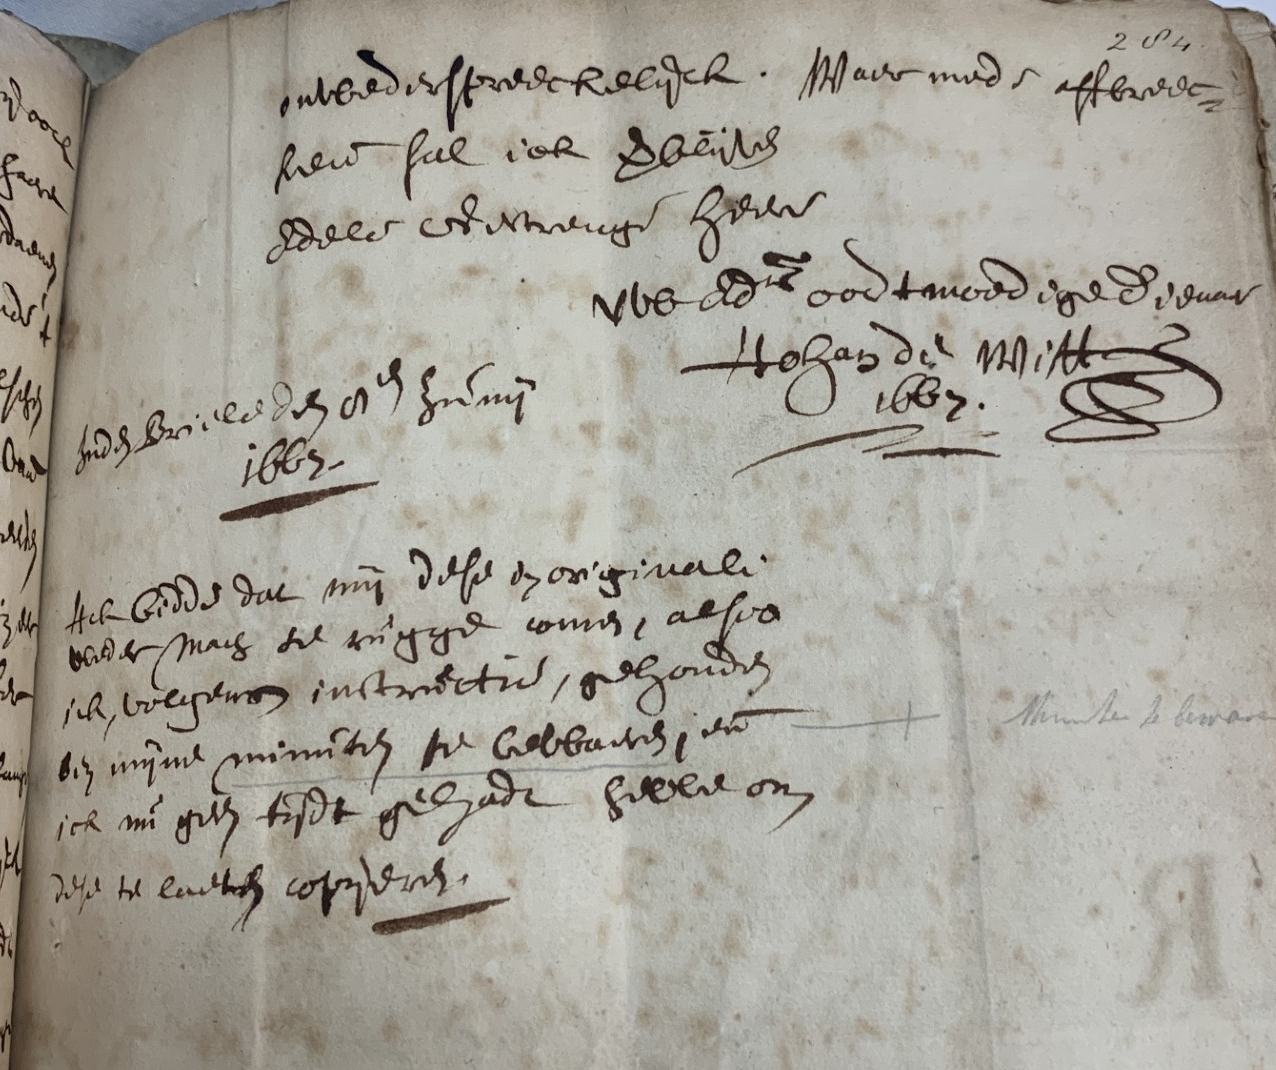 284.
onwederspreeckelijck. Waer mede affbreec=
kende sal ick verblijven
Edele Gestrenge Heere
UWEd.ns ootmoedige Dienaer
Johan de Witt
1667.
Inden Briele den 8en Junij
1667.
Ick bidde dat mij dese in originali
weder mach te rugge comen, alsoo
ick, volgens instructie, gehouden
ben mijne minuten te bewaeren, en
ick nu geen tijdt gehadt hebbe om
dese te laeten copijeren.
Minuten te bewaren